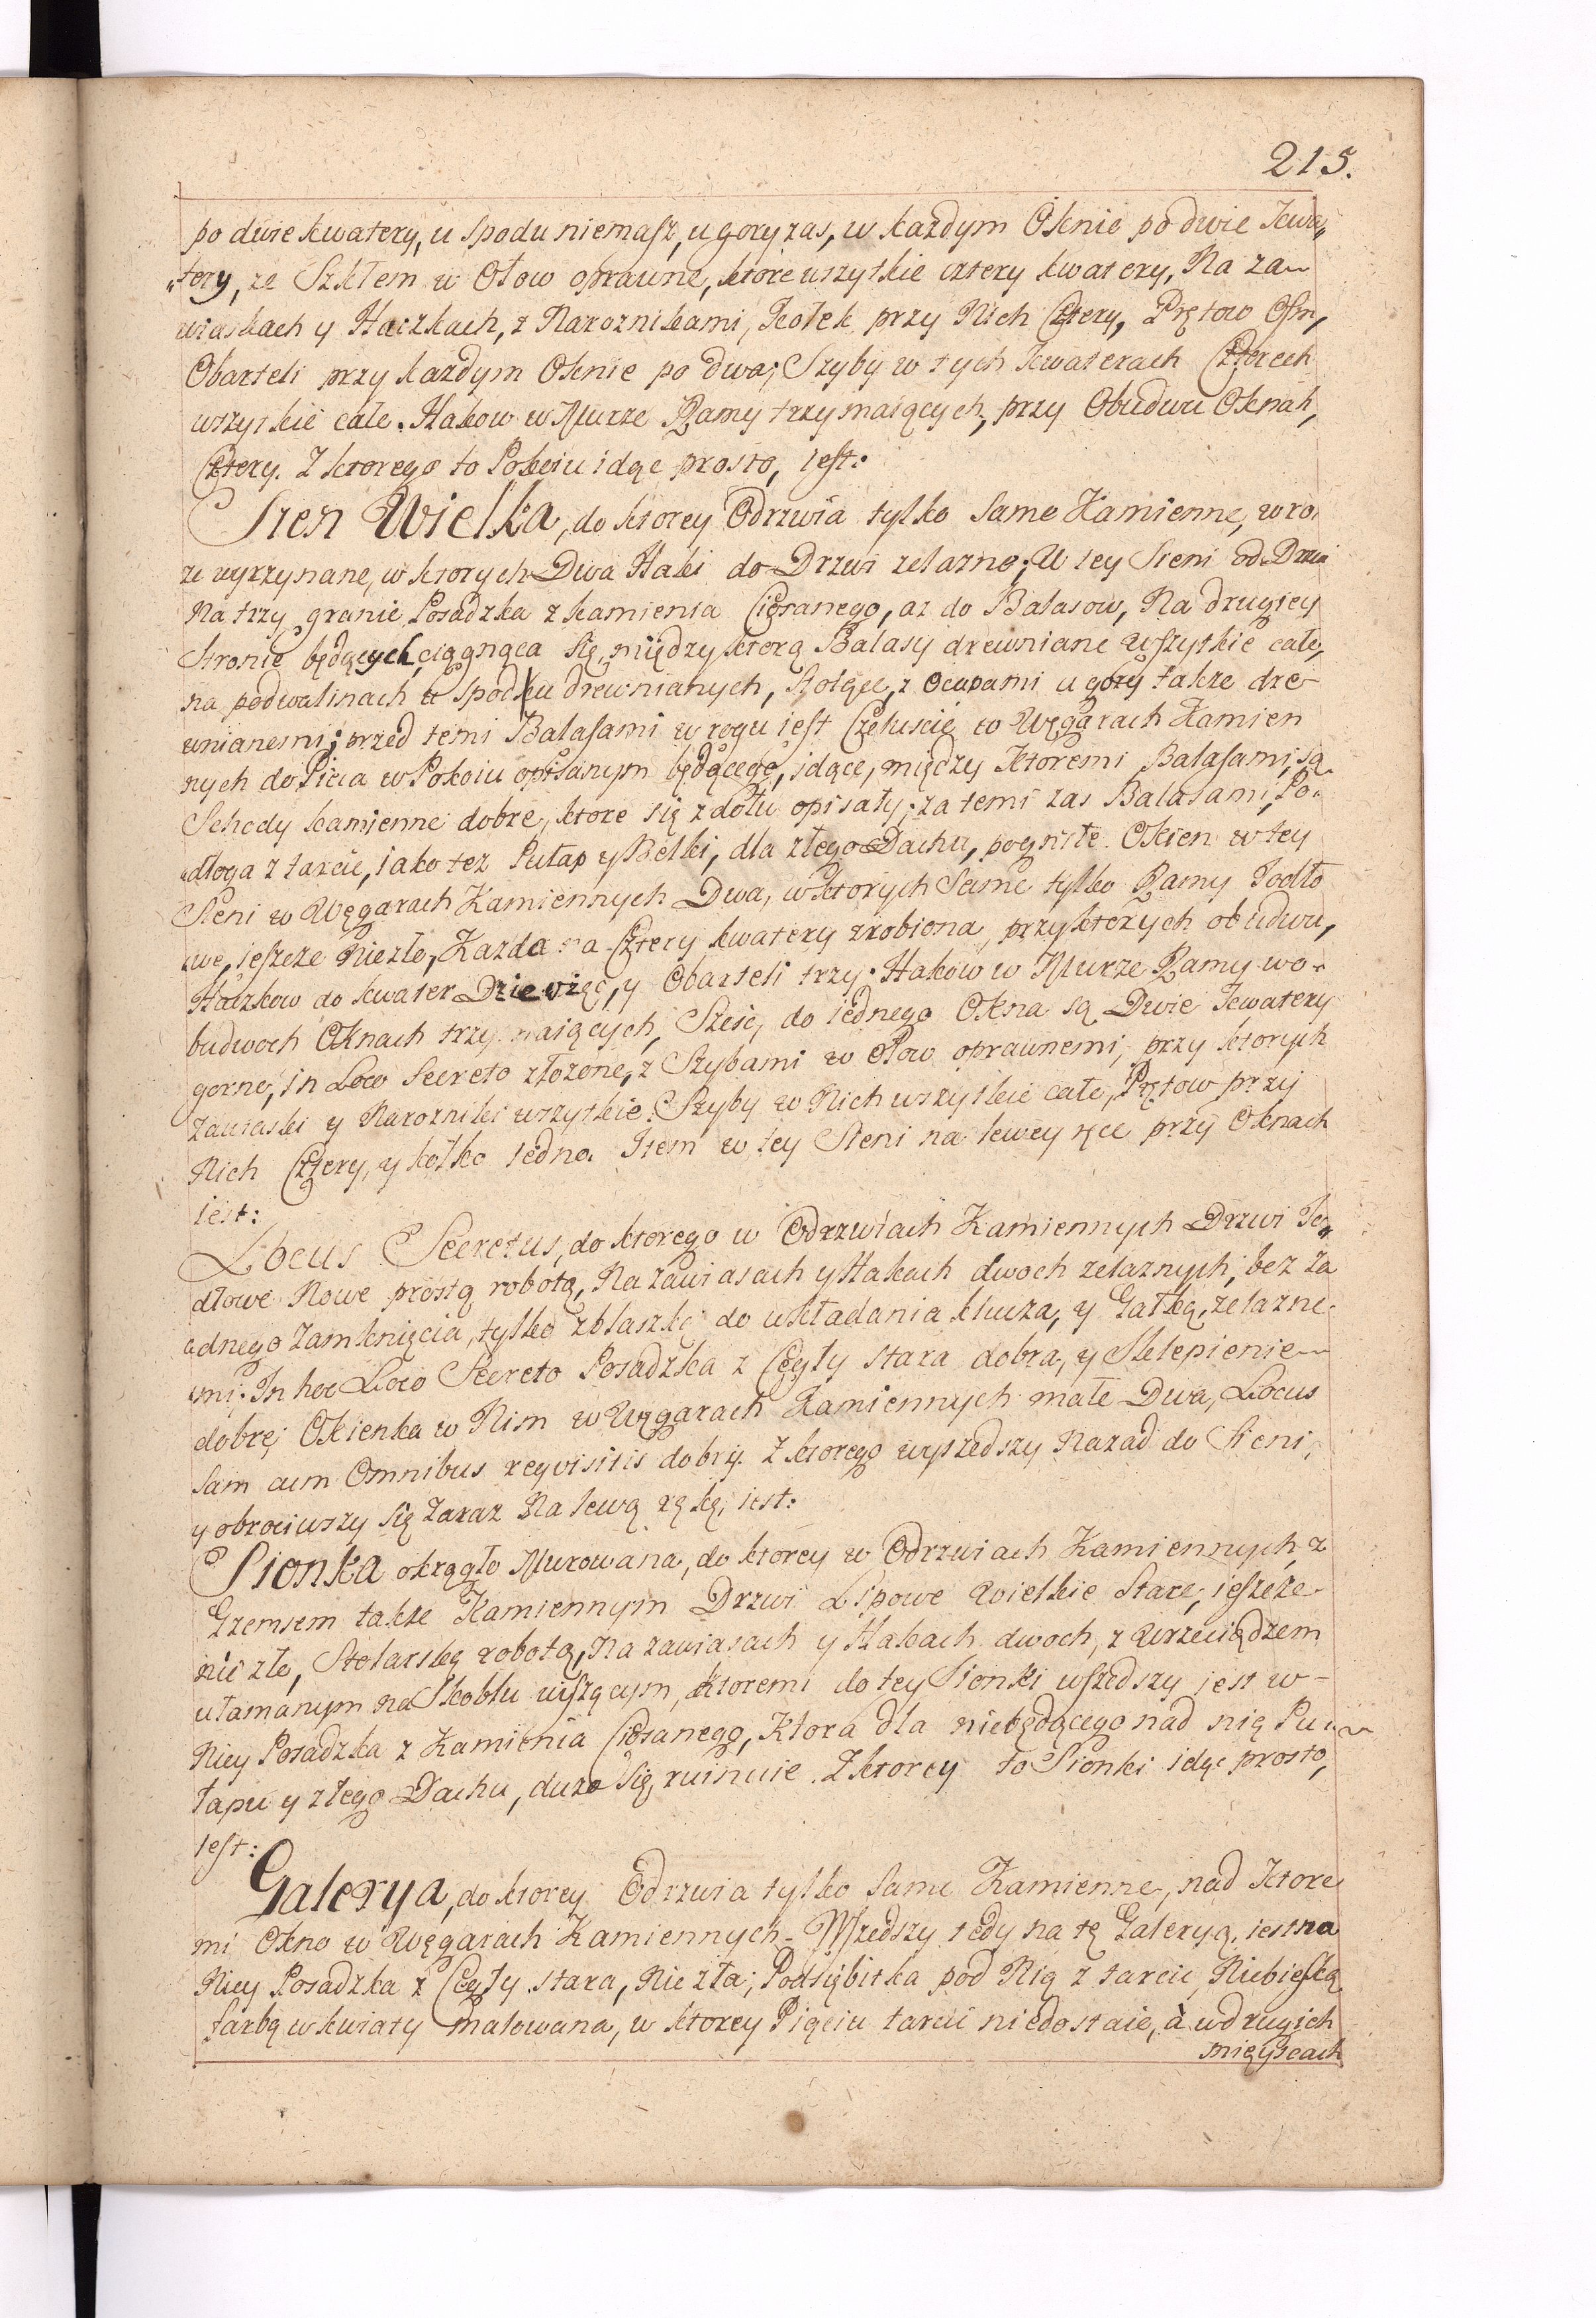 215.
po dwie kwatery, u spodu niemasz, u gory zas, w każdym Oknie po dwie kwa„
„tery, ze Szkłem w Ołow oprawne, ktore wszytkie cztery kwatery, Na za~
wiaskach y Haczkach, z Naroznikami, Kołek przy Nich Cztery, Prętow Osm,
Obarteli przy każdym Oknie po dwa; Szyby w tych kwaterach Czterech
wszytkie całe. Hakow w Murze Ramy trzymaiących, przy Obudwu Oknah,
Cztery. Z ktorego to Pokoiu idąc prosto, iest:
Sien Wielka, do ktorey Odrzwia tylko same Kamienne, w ro
ze wyrzynane, w ktorych Dwa Haki do Drzwi zelazne; W tey Sieni od Drzwi
Na trzy granie Posadzka z kamienia Ciosanego, az do Balasow, Na drugiey
Stronie będących ciągnąca się, między ktorą Balasy drewniane wszytkie całe,
na podwalinach u Spodku drewnianych, stoięce, z Ocapami u gory także dre-
wnianemi; przed temi Balasami w rogu iest Czeluscie w Węgarach Kamien
nych do Pieca w Pokoiu opisanym będącego, idące, między ktoremi Balasami, są
Schody kamienne dobre, ktore się z dołu opisały; za temi zas Balasami, Po„
„dłoga z tarcic, iako tez Pułap y Belki, dla złego Dachu, pogniłe. Okien w tey
Sieni w Węgarach Kamiennych Dwa, w ktorych Same tylko Ramy Jodło
we, ieszcze Niezłe, Kazda na Cztery kwatery zrobiona, przy ktorych obudwu,
Haczkow do kwater Dziewięć, y Obarteli trzy. Hakow w Murze Ramy w o„
budwoch Oknach trzymaiących, Szesc, do iednego Okna są Dwie kwatery
gorne, in Loco Secreto złozone, z Szybami w Ołow oprawnemi, przy ktorych
Zawiaski y Narozniki wszytkie. Szyby w Nich wszytkie całe, Prętow przy
Nich Cztery, y kołko iedno. Item w tey Sieni na lewey ręce przy Oknach
iest:
Locus Secretus, do ktorego w Odrzwiach Kamiennych Drzwi Jo„
dłowe Nowe prostą robotą, Na Zawiasach y Hakach dwoch zelaznych, bez Za
adnego Zamknięcia, tylko z blaszką do wkładania klucza, y Gałką, zelazne„
„mi. In hoc Loco Secreto Posadzka z Cegły stara dobra, y Sklepienie~
dobre; Okienka w Nim w Węgarach Kamiennych małe Dwa, Locus
sam cum Omnibus reqvisitis dobry. Z ktorego wyszedszy Nazad do Sieni,
y obrociwszy się zaraz Na lewą rękę, iest:
Sionka okrągło Murowana, do ktorey w Odrzwiach Kamiennych, z
Gzemsem takze Kamiennym Drzwi Lipowe Wielkie Stare, ieszcze
nie złe, Stolarską robotą, Na zawiasach y Hakach dwoch, z Wrzeciądzem
ułamanym na Skoblu wiszącym, ktoremi do tey Sionki wszedszy iest w-
Niey Posadzka z Kamienia Ciosanego, Ktora dla niebędącego nad nię Pu„~
łapu y złego Dachu, duzo się ruinuie. Z ktorey to Sionki idąc prosto,
iest:
Galerya, do ktorey Odrzwia tylko same Kamienne, nad ktore
mi Okno w Węgarach Kamiennych. Wszedszy tedy na tę Galeryą, iest na
Niey Posadzka z Cegły stara, Nie zła; Podsiębitka pod Nią z tarcic, Niebieską
farbą w kwiaty malowana, w ktorey Pięciu tarcic niedostaie, à w drugich
mieyscach